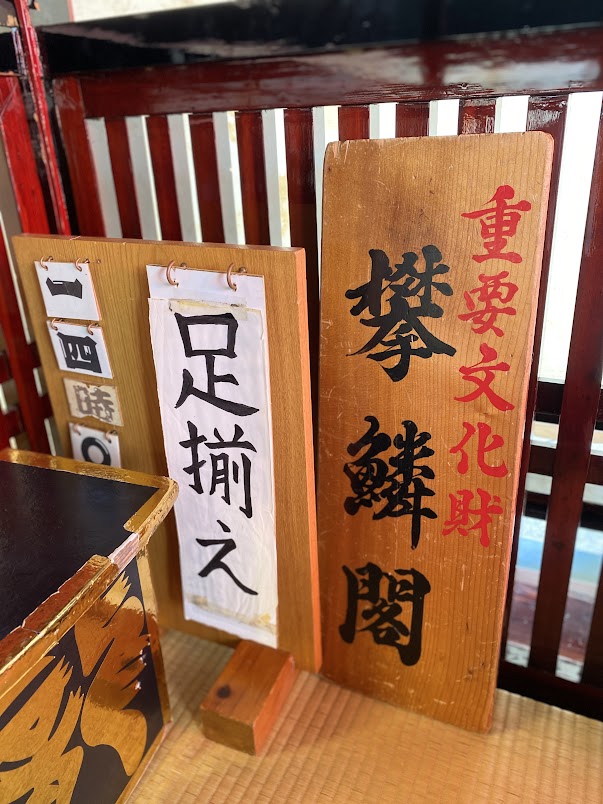 重要文化財
攀鱗閣
足揃え
一
四
時
〇